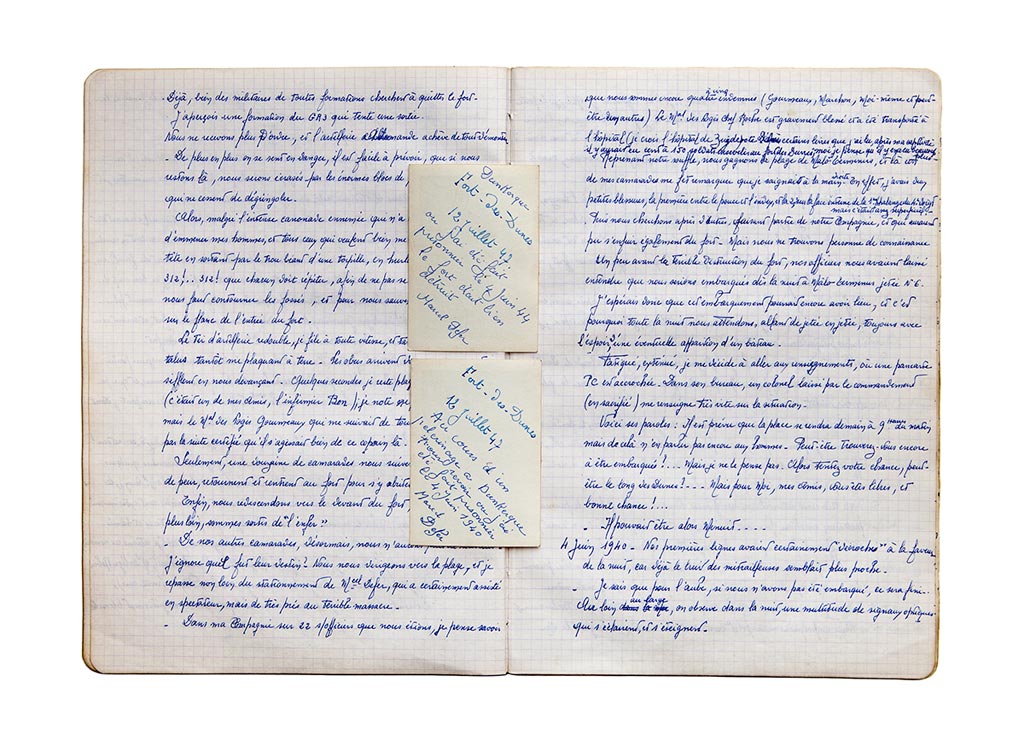 Déjà, bien des militaires de toutes formations cherchent à quitter le fort.
J'aperçois une formation du GR3 qui tente une sortie.
Nous ne recevons plus d'ordre, et l'artillerie allemande achève de tout démonter
- De plus en plus on se sent en danger, il est facile à prévoir, que si nous
restons là, nous serons écrasés par les énormes blocs de
qui ne cessent de dégringoler.
Alors, malgré l'intense canonade ennemie qui n'a
d'emmener mes hommes, et tous ceux qui veulent bien me
tête en sortant par le trou béant d'une torpille, en hurl
312!.. 312! que chacun doit répéter, afin de ne pas se
nous faut contourner les fossés, et pour nous sauver
sur le flanc de l'entrée du fort.
Le tir d'artillerie redouble, je file à toute vitesse, et
talus tantôt me plaquant à terre. Les obus arrivent
sifflent en nous devançant. Quelques secondes je reste pla
(c'était un de mes amis, l'infirmier Bon); je note
mais le Mal des Logis Gourmeaux qui me suivait de
par la suite certifié qu'il s'agissait bien de ce copain là.
Seulement, une dizaine de camarades nous suivent
de peur, retournent et rentrent au fort pour s'y abriter
Enfin, nous redescendons vers le devant du fort,
plus loin, sommes sortis de "l'enfer"
- De nos autres camarades, désormais, nous n'au
j'ignore quel fut leur destin! Nous nous dirigeons vers la plage, et je
repasse non loin du stationnement de Mcel Defer, qui a certainement assisté
en spectateur, mais de très près au terrible massacre.
- Dans ma Compagnie sur 22 s/officiers que nous étions, je pense savoir
Dunkerque
Fort-des-Dunes
12 Juillet 42
où j'ai été fait
prisonnier le 4 Juin 44
le fort étant bien
détruit
Marcel Defer
Fort-des-Dunes
12 Juillet 42
Au cours d'un
pèlerinage à Dunkerque
pour revoir où j'ai
été fait prisonnier
le 4 Juin 1940
Marcel
Defer
que nous sommes encore quatre cinq indemnes (Gourmeaux, Marchon, Moi-même et peut-
être Le Mal des Logis Chef Roche est gravement blessé et a été transporté à
l'hôpital (je crois l'hôpital de Zuydcoote certains livres que j'ai lu, après ma captivité
il y aurait eu cent à 150 soldats au fort des Dunes, moi je pense qu'il y a eu beaucoup plus
Reprenant notre souffle, nous gagnons la plage de Malo-Terminus, et là un
de mes camarades me fait remarquer que je saignais à la main droite. En effet, j'avais deux
petites blessures, la première entre le pouce et l'index, et la 2ème la face interne de la 1ère Phalange du 4e doigt
mais c'était superficiel
Puis nous cherchons après d'autres, faisant partie de notre Compagnie, et qui auraient
pu s'enfuir également du fort. Mais nous ne trouvons personne de connaissance
Un peu avant la terrible destruction du fort, nos officiers nous avaient laissé
entendre que nous serions embarqués dès la nuit à Malo-Terminus jetée N°6.
J'espérais donc que cet embarquement pourrait encore avoir lieu, et c'est
pourquoi toute la nuit nous attendons, allant de jetée en jetée, toujours avec
l'espoir d'une éventuelle apparition d'un bateau.
Fatigué, exténué, je me décide à aller aux renseignements, où une pancarte
PC est accrochée. Dans son bureau, un colonel laissé par le commandement
(en sacrifié) me renseigne très vite sur la situation.
Voici ses paroles: Il est prévu que la place se rendra demain à 9 heures du matin,
mais de celà n'en parler pas encore aux hommes. Peut-être trouverez-vous encore
à être embarqué!.... Mais je ne le pense pas. Alors tentez votre chance, peut-
être le long des Dunes!.--. Mais pour moi, mes amis, vous êtes libres, et
bonne chance!...
- Il pouvait être alors Minuit.....
4 Juin 1940 - Nos premières lignes avaient certainement "décroché" à la faveur
de la nuit, car déjà le bruit des mitrailleuses semblait plus proche.
- Je sais que pour l'aube, si nous n'avons pas été embarqué, ce sera fini.-
Au loin au large, on observe dans la nuit, une multitude de signaux optiques
qui s'éclairent, et s'éteignent.